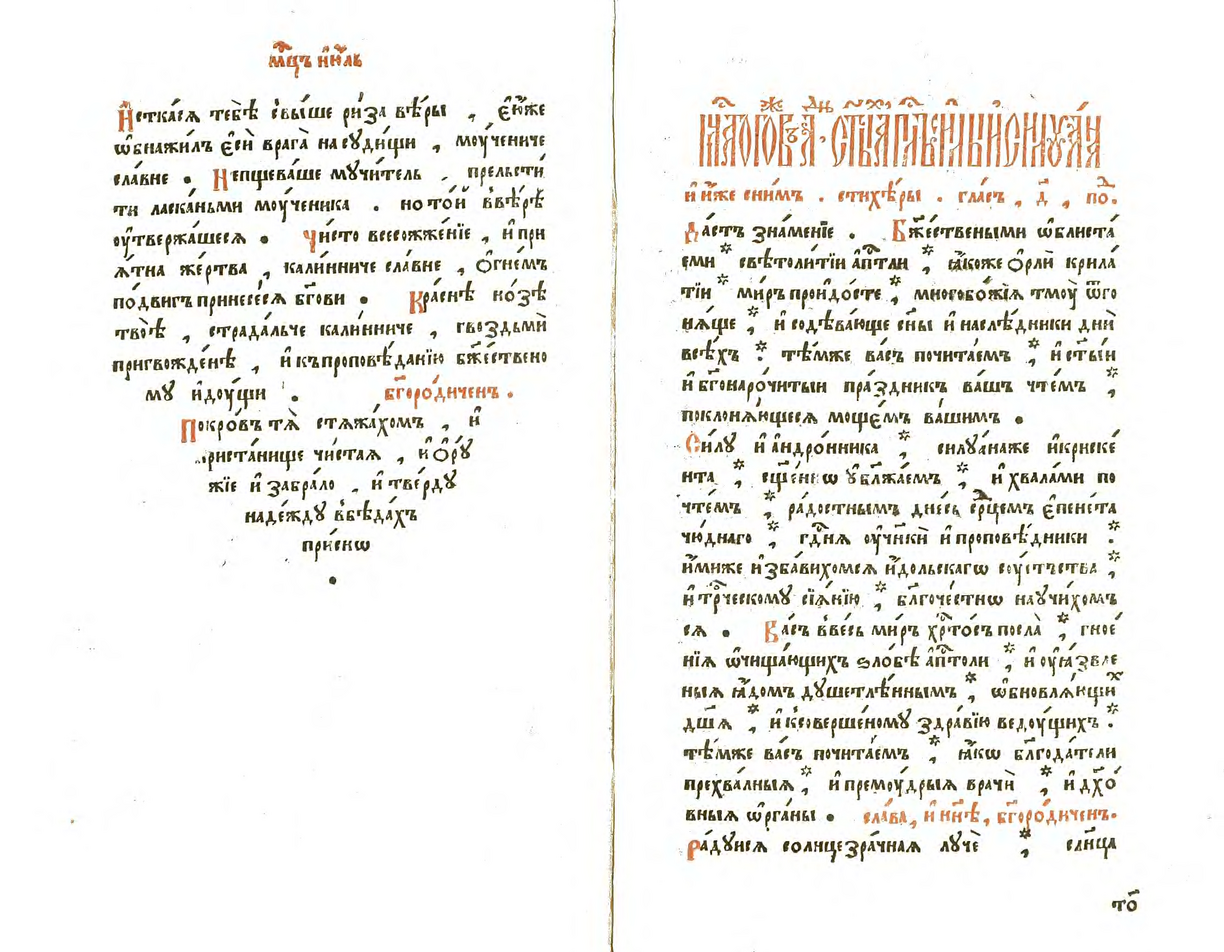 мц҃ъ ию҆ль
И҆стка́сѧ тебѣ̀ свы́ше ри́за вѣ́ры , є҆ю́же
ѡ҆бнажи́лъ є҆сѝ врага̀ насꙋди́щи , моу́чениче
сла́вне . Непщева́ше мꙋчи́тель , прельсти́
ти ласка́ньми моу́ченика . но то́й ввѣ́рѣ
оу҆твержа́шесѧ . Чи́сто всесожже́нїе , и҆ при
ѧ́тна же́ртва , кали́нниче сла́вне , ѻ҆гне́мъ
по́двигъ принесе́сѧ бг҃ови . Кра́снѣ но́зѣ
твоѝ , страда́льче кали́нниче , гвоздьмѝ
пригвожде́нѣ , и҆ къ проповѣ́данїю бж҃е́ствено
мꙋ и҆дꙋ́щи . бг҃оро́диченъ .
Покро́въ тѧ̀ стѧжа́хомъ , и҆
пристанище чи́стаѧ , и҆ ѻ҆рꙋ́
жїе и҆ забра́ло , и҆ тве́рдꙋ
наде́ждꙋ в бѣда́хъ
при́снѡ
и҆ и҆́же сни́мъ . стихѣ́ры . гла́съ , д҃ , по́д .
Да́стъ зна́менїе . Бж҃е́ствеными ѡ҆блиста́
еми свѣтоли́тїи а҆п҃тли , ꙗ҆́коже ѻ҆рлѝ крила́
тїи ми́ръ проидо́сте , многобо́жїѧ тмоу̀ ѿго
нѧ́ще , и҆ содѣ́вающе сн҃ы и҆ наслѣ́дники дни
всѣ́хъ : тѣ́мже ва́съ почита́емъ , и҆ ст҃ы́и
и҆ бг҃онаро́читыи пра́здникъ ва́шъ чте́мъ ,
поклонѧ́ющесѧ моще́мъ ва́шимъ .
Си́лꙋ и҆ а҆ндро́нника , силꙋа́наже и҆ криске́
нта , сщ҃е́ннѡ ᲂу҆бл҃жа́емъ , и҆ хвала́ми по
чте́мъ , ра́достнымъ дне́сь ср҃цемъ є҆пене́та
чю́днаго , гд҃нѧ ᲂу҆ч҃нки и҆ проповѣ́дники :
и҆́миже и҆зба́вихомсѧ и҆́дольскагѡ соуе́тства ,
и҆ трⷪ҇ческомꙋ сїѧ́нїю , бл҃гоче́стнѡ наꙋчи́хом
сѧ . Ва́съ вве́сь ми́ръ хр҃то́съ посла̀ , гное́
нїѧ ѡ҆чища́ющихъ ѕло́бѣ а҆п҃толи , и҆ оу҆ꙗ́звле
ныѧ ꙗ҆́домъ дꙋшетлѣ́ннымъ , ѡ҆бновлѧ́ющих
дш҃ѧ , и҆ ксоверше́номꙋ здра́вїю ведꙋ́щихъ :
тѣ́мже ва́съ почита́емъ , ꙗ҆́кѡ бл҃года́тели
прехва́лныѧ , и҆ премоу́дрыѧ врачѝ , и҆ дх҃о́
вныѧ ѡ҆рга́ны . сла́ва , и҆ нн҃ѣ , бг҃оро́диченъ .
Ра́дꙋисѧ солнцезра́чнаѧ лꙋчѐ , слн҃ца
то҃